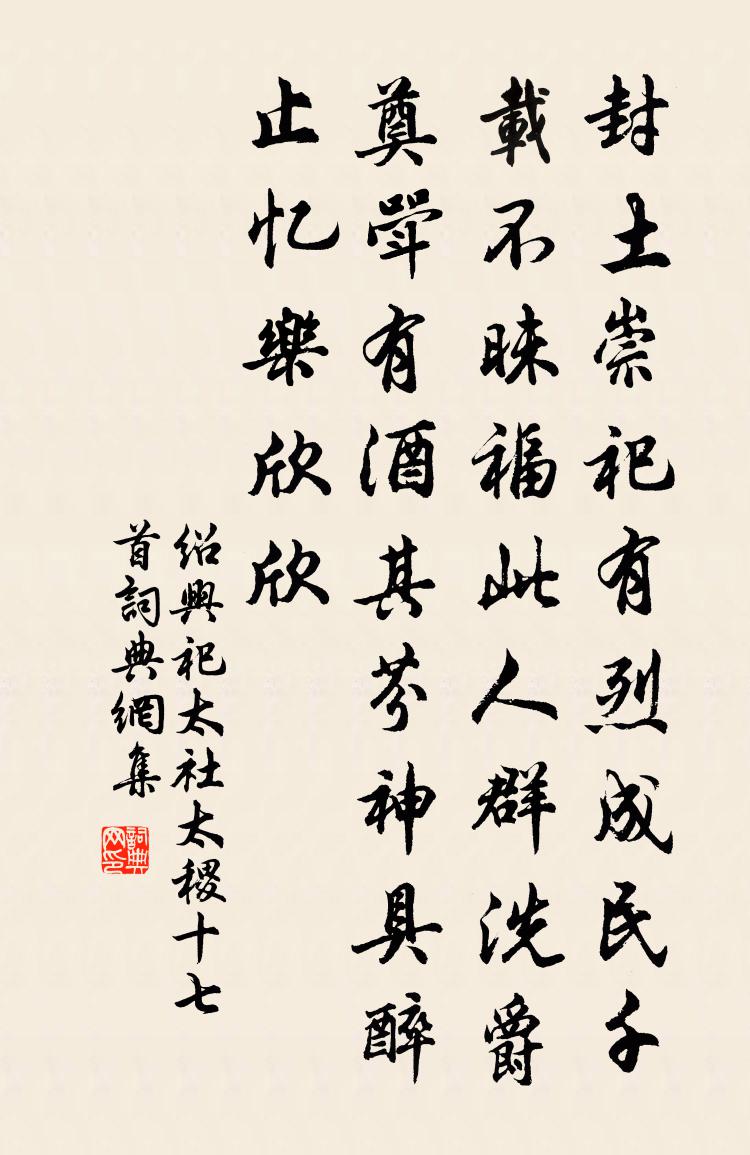 封土崇祀有烈成民千
載不昧福此人群洗爵
奠斝有酒其芬神具醉
止忆樂欣欣
绍興祀太社太稷十七
首詞典網集
詞典网印